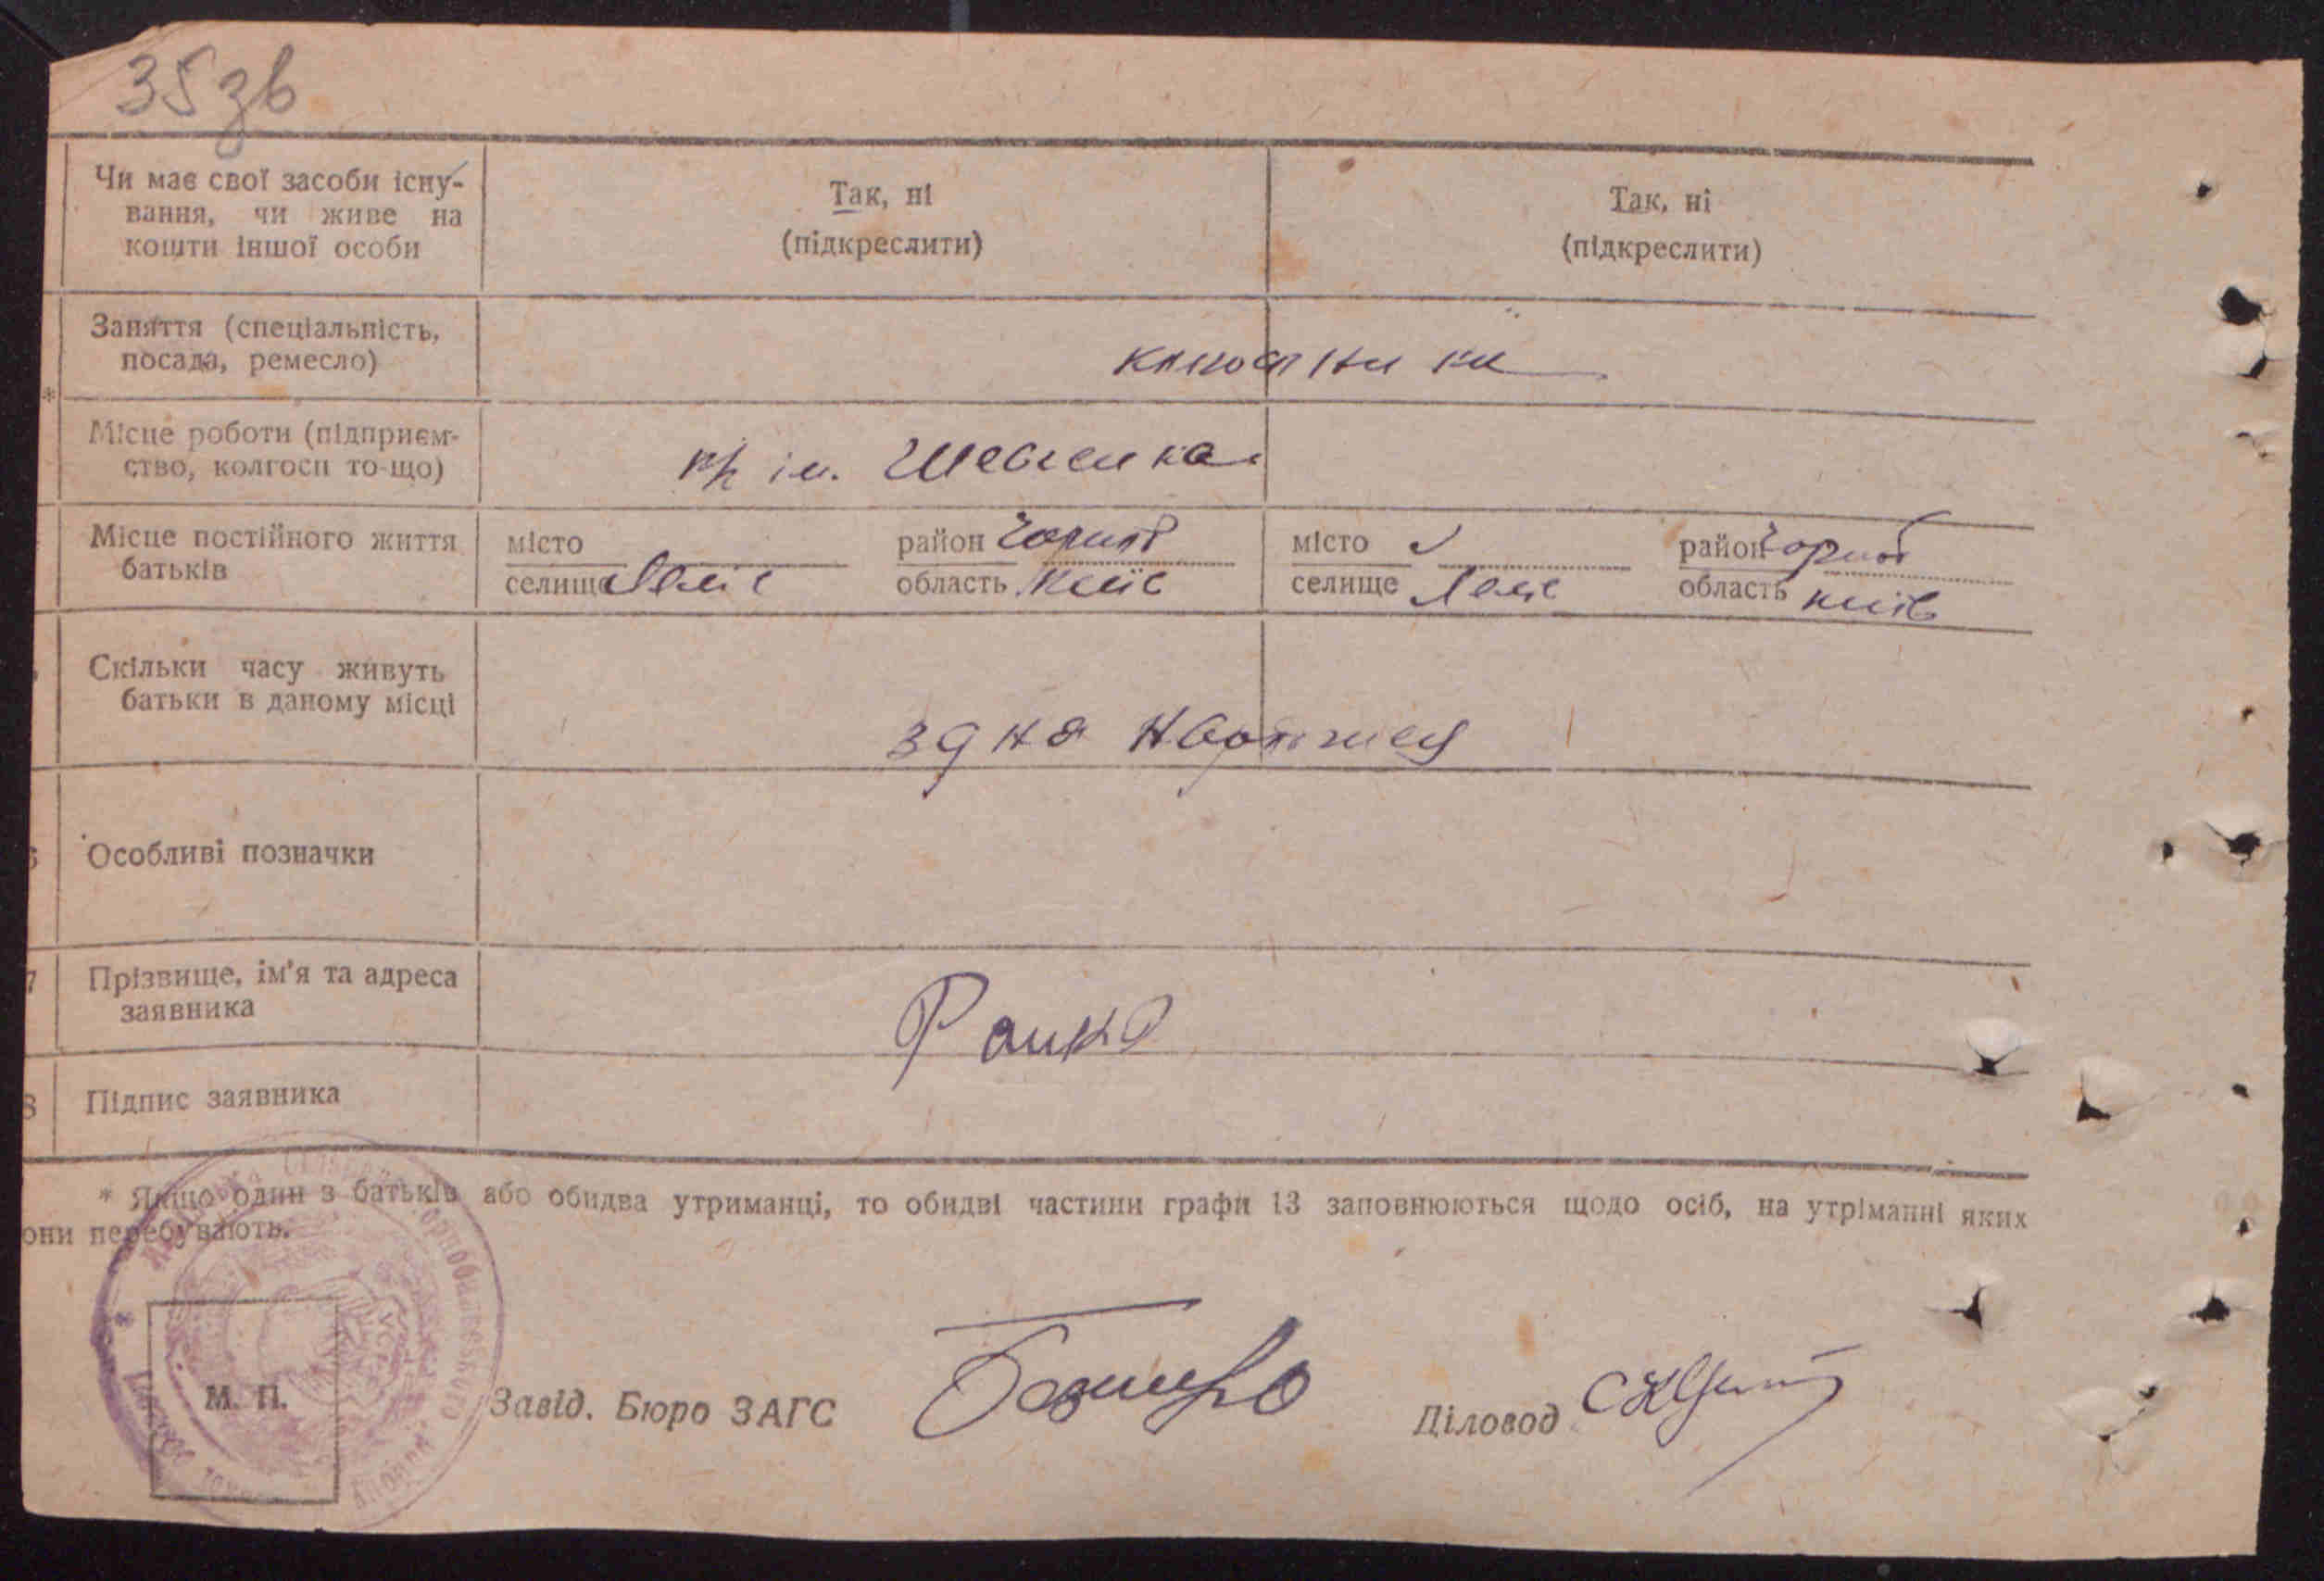 35 зв
Чи має свої засоби існу-
вання, чи живе на
кошти іншої особи
Так, ні
(підкреслити)
Так, ні
(підкреслити)
Заняття (спеціальність,
посада, ремесло)
*
Місце роботи (підприєм-
ство, колгосп то-що)
ім. Шевченка
Місце постійного життя
батьків
місто
селище
район Чорноб
область Київ
місто
селище
район Чорноб
область Київ
Скільки часу живуть
батьки в даному місці
з дня народження
6 Особливі позначки
7 Прізвище, ім'я та адреса
заявника
8 Підпис заявника
* Якщо один з батьків або обидва утриманці, то обидві частини графи 13 заповнюються щодо осіб, на утріманні яких
они перебувають.
М. П.
Завід. Бюро ЗАГС
Діловод
Чорнобильського району